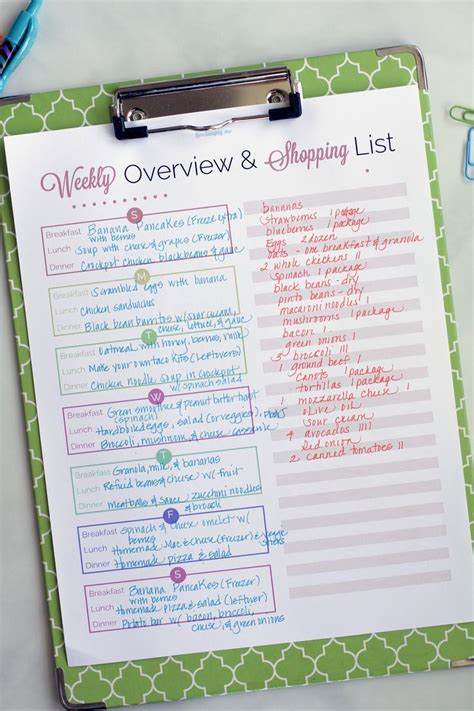 Weekly Overview & Shopping List
S
Breakfast Banana Pancakes (Freeze extra) with berries
Lunch Soup with cheese & grapes (Freezer)
Dinner Crockpot chicken black beans &
M
Breakfast Scrambled eggs with banana
Lunch chicken sandwiches
Dinner Black bean burritos w/ sour cream, cheese, lettuce, &
T
Breakfast Oatmeal with honey, berries, milk
Lunch Make your own taco kits (leftovers)
Dinner Chicken noodle soup in crockpot w/ spinach salad
W
Breakfast Green smoothie & peanut butter toast (spinach)
Lunch Hardboiled eggs, salad (or veggies),
Dinner Broccoli, mushroom & cheese casserole
T
Breakfast Granola, milk, & bananas
Lunch Refried beans & cheese w/ fruit
Dinner meatballs & sauce zucchini noodles & brocoli
F
Breakfast Spinach & cheese omelet w/ berries
Lunch Homemade Mac & cheese (Freezer) & veggie sticks
Dinner Homemade pizza & salad
S
Breakfast Banana Pancakes (Freezer) with berries
Lunch Homemade pizza & salad (leftover)
Dinner Potato bar w/ bacon, broccoli, cheese, & green onions
bananas
Strawberries 1 package
blueberries 1 package
Eggs 2 dozen
oats - one breakfast & granola
2 whole chickens II
Spinach 1 package
black beans - dry
pinto beans - dry
macaroni noodles 1
mushrooms 1 package
bacon 1
green onions 1
3 broccoli III
1 ground beef 1
carrots 1 package
tortillas 1 package
1 mozzarella cheese 1
olive oil
sour cream
4 avocados IIII
Red onion
2 canned tomatoes II